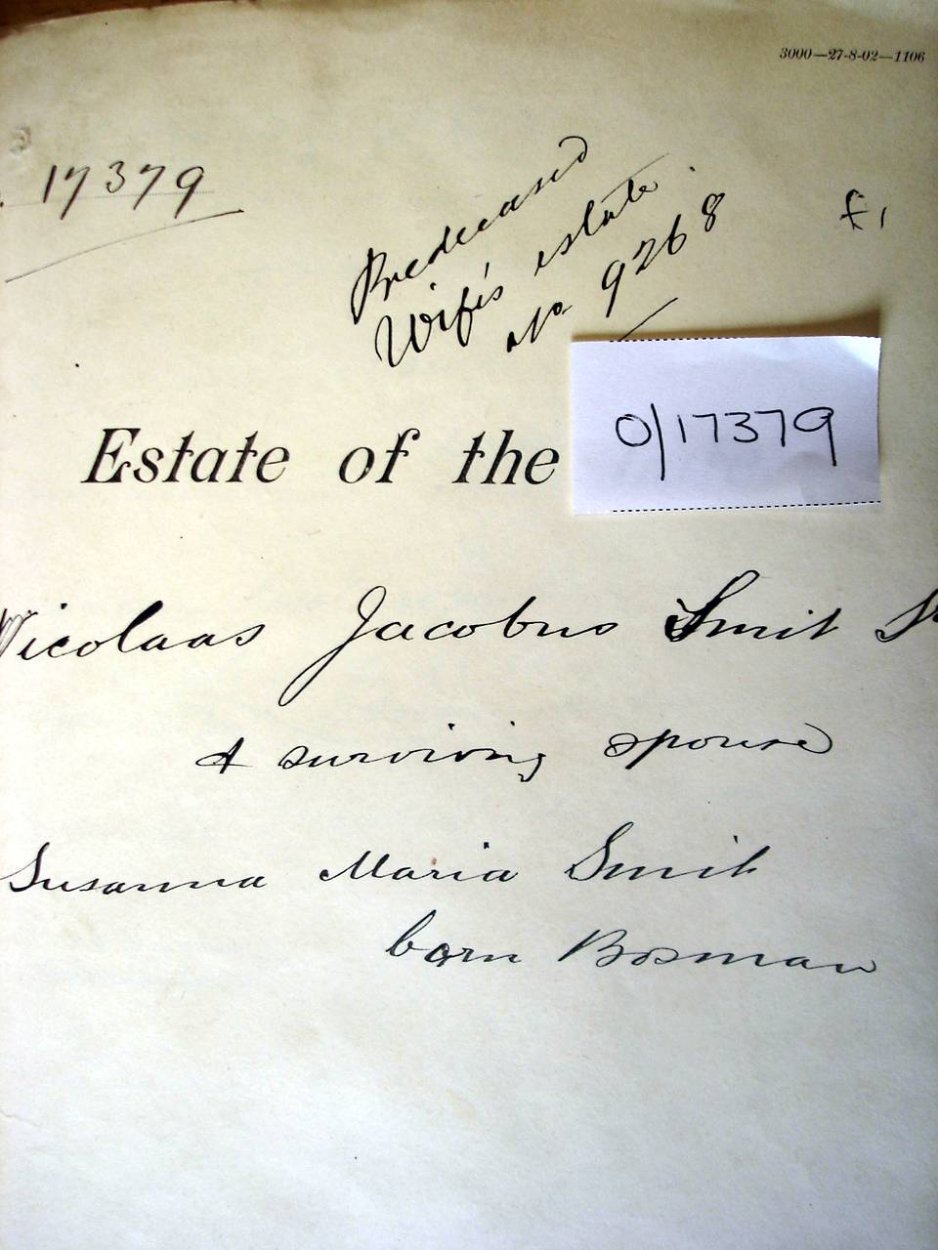 3000—27-8-02—1106
17379
Predeceased
Wife's estate
No 9268
£1
0/17379
Estate of the
Nicolaas Jacobus Smit
& surviving spouse
Susanna Maria Smit
born Bosman